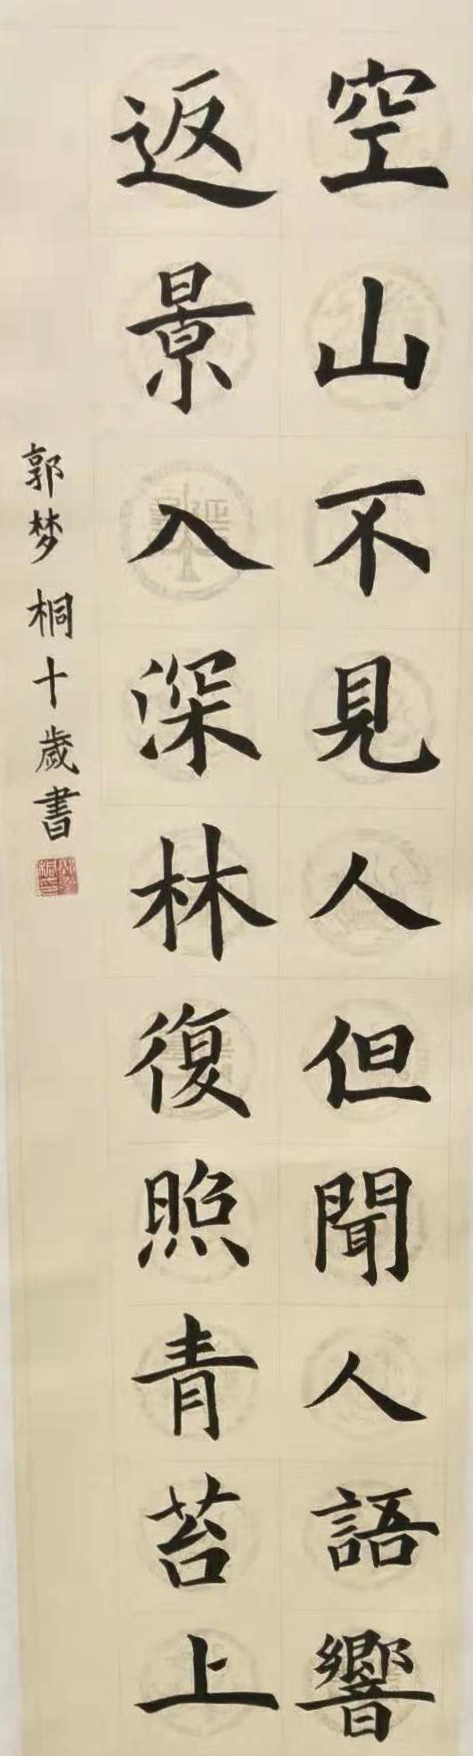 空山不見人但聞人語響
返景入深林復照青苔上
郭梦桐十歲書